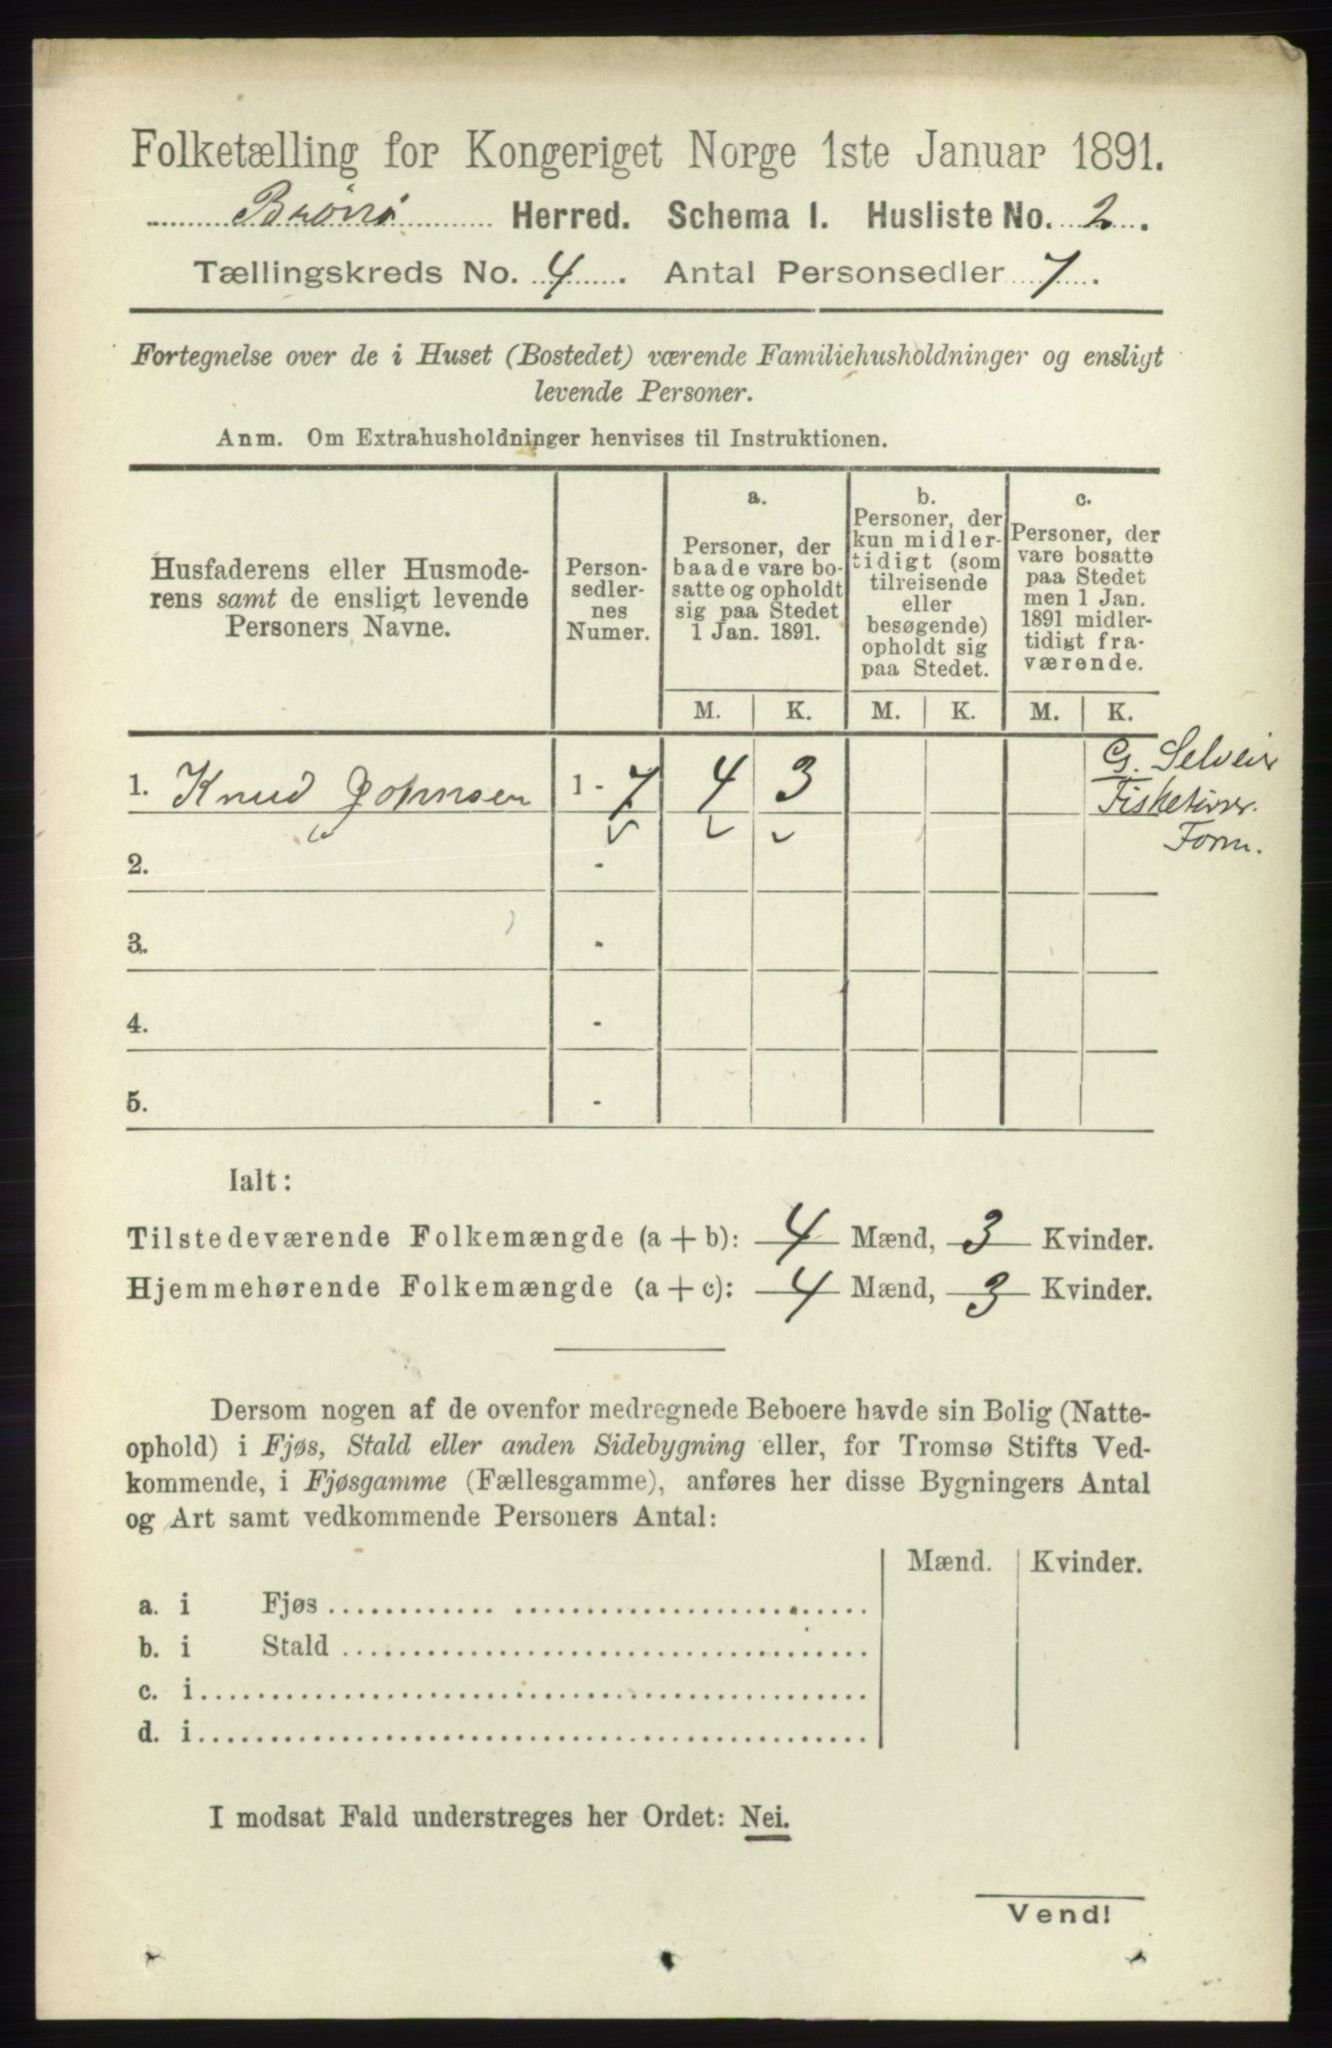 Folketælling for Kongeriget Norge 1ste Januar 1891.
Brönö Herred. Schema I. Husliste No. 2.
Tællingskreds No. 4. Antal Personsedler 7.
Fortegnelse over de i Huset (Bostedet) værende Familiehusholdninger og ensligt
levende Personer.
Anm. Om Extrahusholdninger henvises til Instruktionen.
Husfaderens eller Husmode-
rens samt de ensligt levende
Personers Navne.
Person-
sedler-
nes
Numer.
a.
Personer, der
baade vare bo-
satte og opholdt
sig paa Stedet
1 Jan. 1891.
b.
Personer, der
kun midler-
tidigt (som
tilreisende
eller
besøgende)
opholdt sig
paa Stedet.
c.
Personer, der
vare bosatte
paa Stedet
men 1 Jan.
1891 midler-
tidigt fra-
værende.
M. K. M. K. M. K.
1. Knud Johnsen 1 - 7 4 3
G. Selveier
Form.
2. -
3. -
4. -
5. -
Ialt:
Tilstedeværende Folkemængde (a + b): 4 Mænd, 3 Kvinder.
Hjemmehørende Folkemængde (a + c): 4 Mænd, 3 Kvinder.
Dersom nogen af de ovenfor medregnede Beboere havde sin Bolig (Natte-
ophold) i Fjøs, Stald eller anden Sidebygning eller, for Tromsø Stifts Ved-
kommende, i Fjøsgamme (Fællesgamme), anføres her disse Bygningers Antal
og Art samt vedkommende Personers Antal:
Mænd. Kvinder.
a. i Fjøs
b. i Stald
c. i
d. i
I modsat Fald understreges her Ordet: Nei.
Vend!